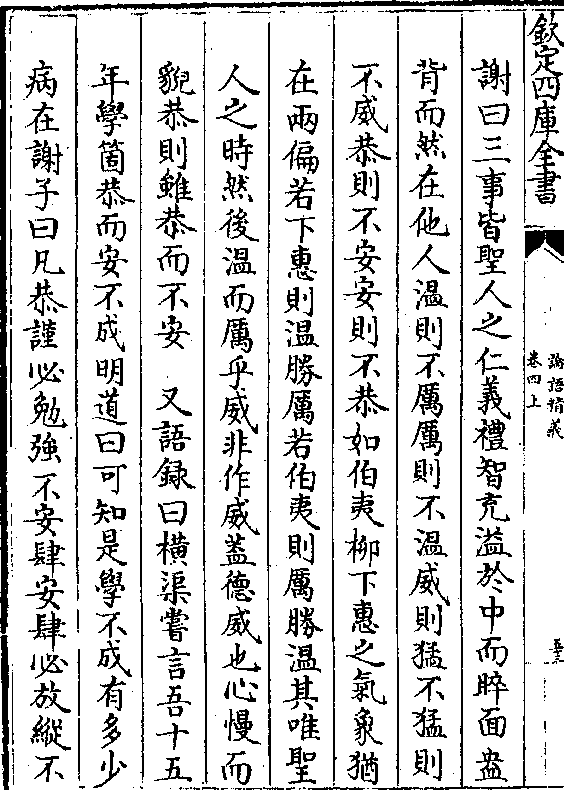 欽定四庫全書
論語精義
卷四上
謝曰三事皆聖人之仁義禮智充溢於中而睟面盎
背而然在他人温則不厲厲則不温威則猛不猛則
不威恭則不安安則不恭如伯夷柳下惠之氣象猶
在兩偏若下惠則温勝厲若伯夷則厲勝温其唯聖
人之時然後温而厲乎威非作威蓋德威也心慢而
貌恭則雖恭而不安 又語録曰橫渠嘗言吾十五
年學箇恭而安不成明道曰可知是學不成有多少
病在謝子曰凡恭謹必勉強不安肆安肆必放縱不